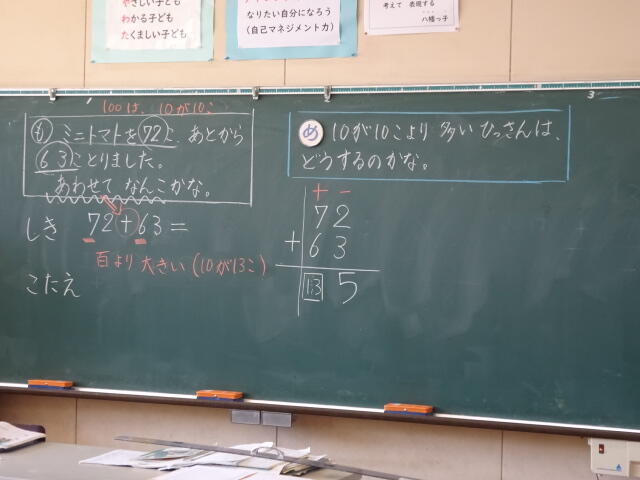 やさしい子ども
わかる子ども
たくましい子ども
なりたい自分になろう
(自己マネジメント力)
考えて 表現する
八幡っ子
100は、10が10こ
も ミニトマトを72こ、あとから
63ことりました。
あわせて なんこかな。
しき 72+63=
百より 大きい(10が13こ)
こたえ
め 10が10こより 多い ひっさんは、
どうするのかな。
十 一
72
+63
13 5